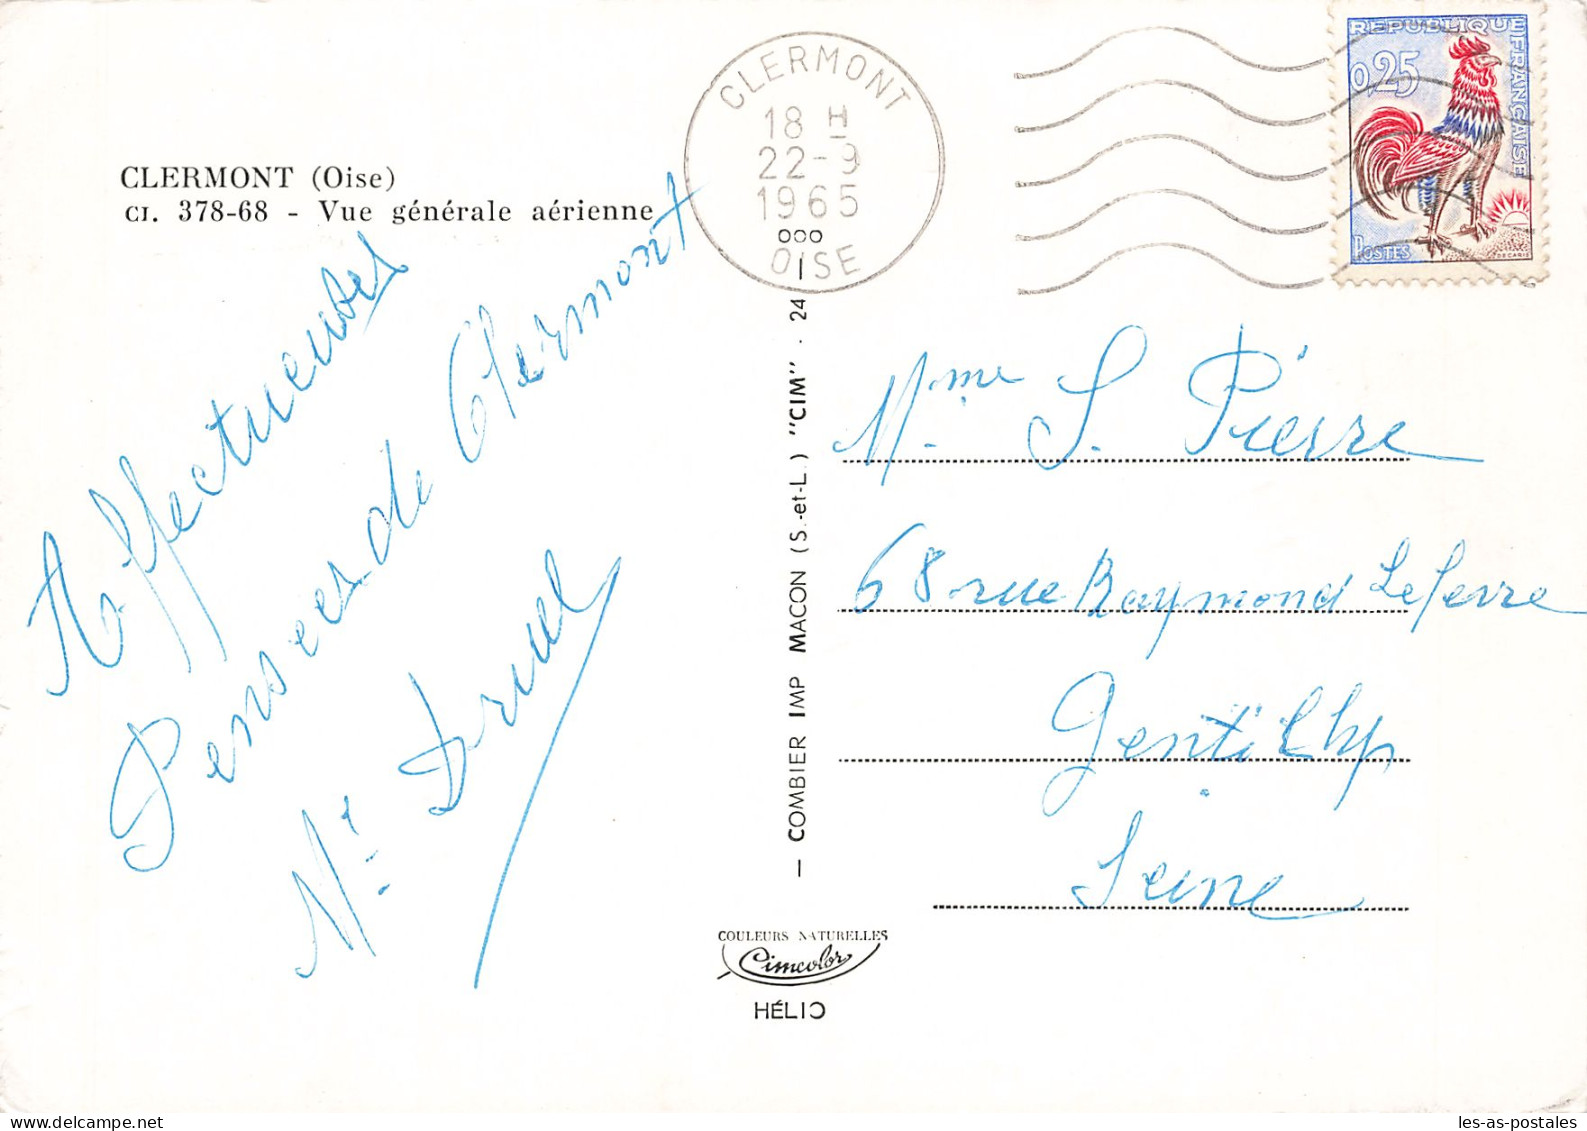 CLERMONT (Oise)
CI. 378-68 - Vue générale aérienne
CLERMONT
18 H
22-9
1965
OISE
REPUBLIQUE FRANÇAISE
0,25
POSTES
DECARIS
Affectueuses
Pensées de Clermont
M. Druel
Mme S. Pierre
68 rue Raymond Lefevre
Gentilly
Seine
— COMBIER IMP MACON (S.-et-L.) "CIM" . 24 —
COULEURS NATURELLES
Cimcolor
HÉLIO
les-as-postales